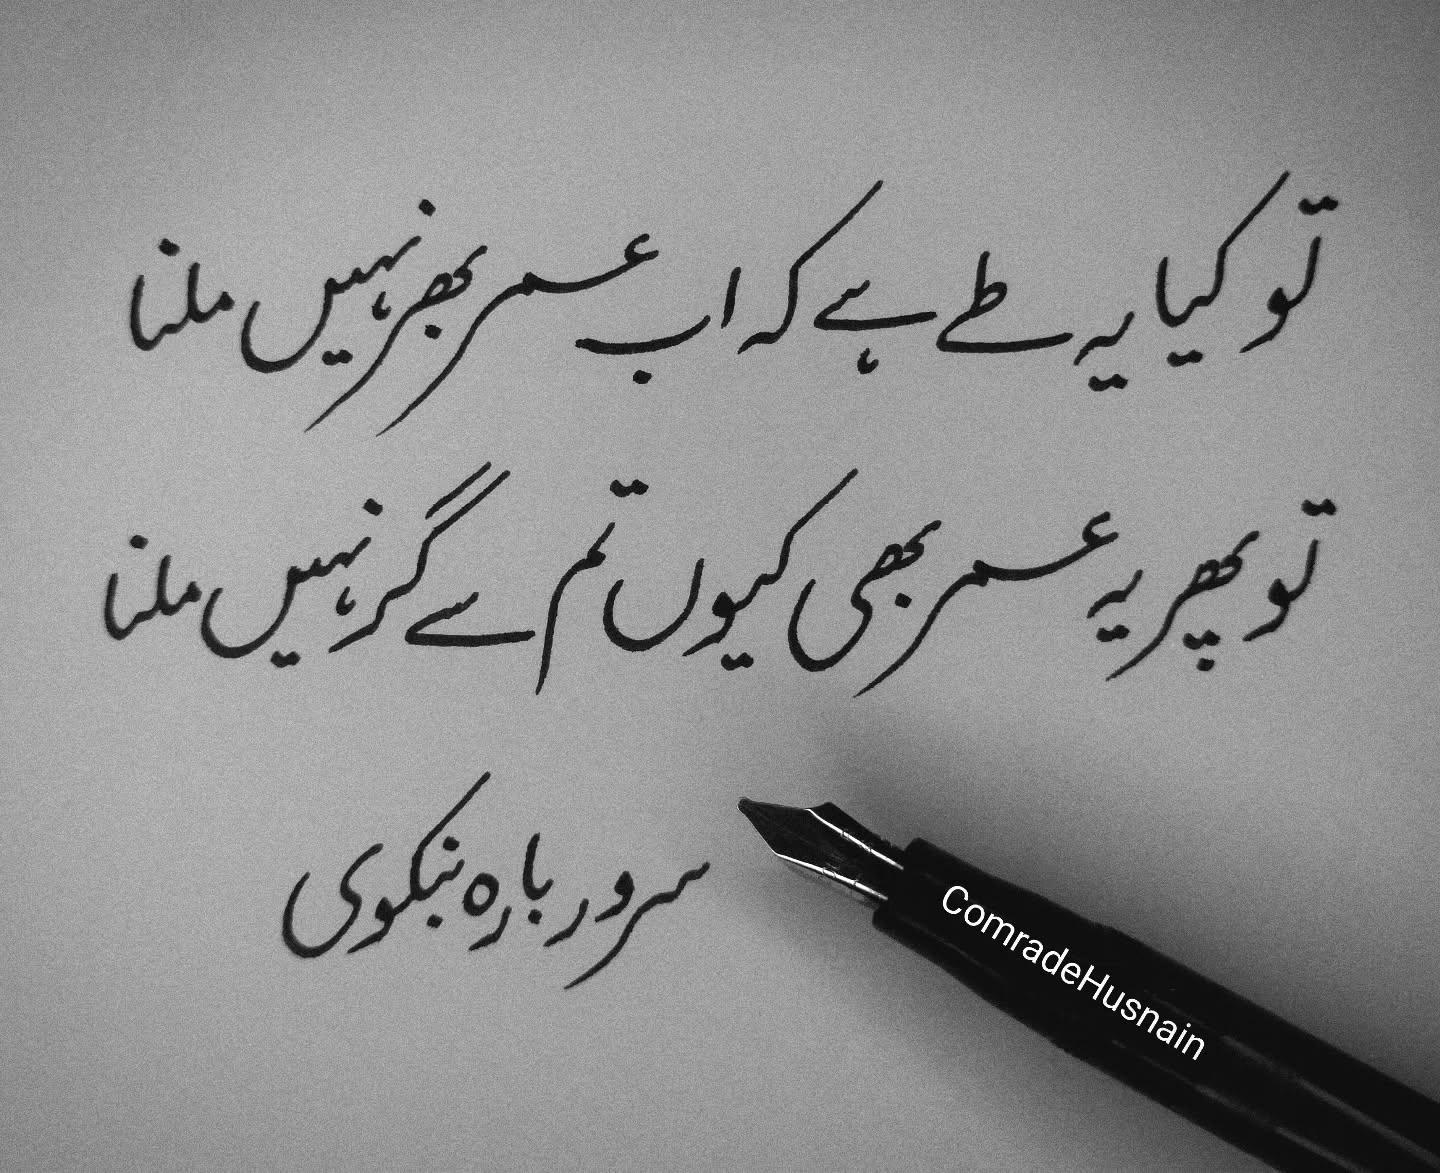 تو کیا یہ طے ہے کہ اب عمر بھر نہیں ملنا
تو پھر یہ عمر بھی کیوں تم سے گر نہیں ملنا
سرور بارہ بنکوی
ComradeHusnain